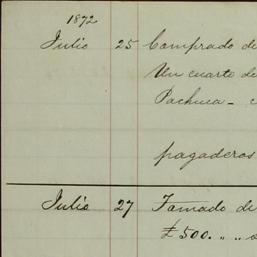 1872
Julio 25 Comprado de
Un cuarto de
Pachuca —
pagaderos
Julio 27 Tomado de
£500. „ „